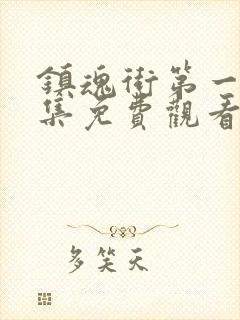 鎮魂街第一
集免費觀看
多笑天